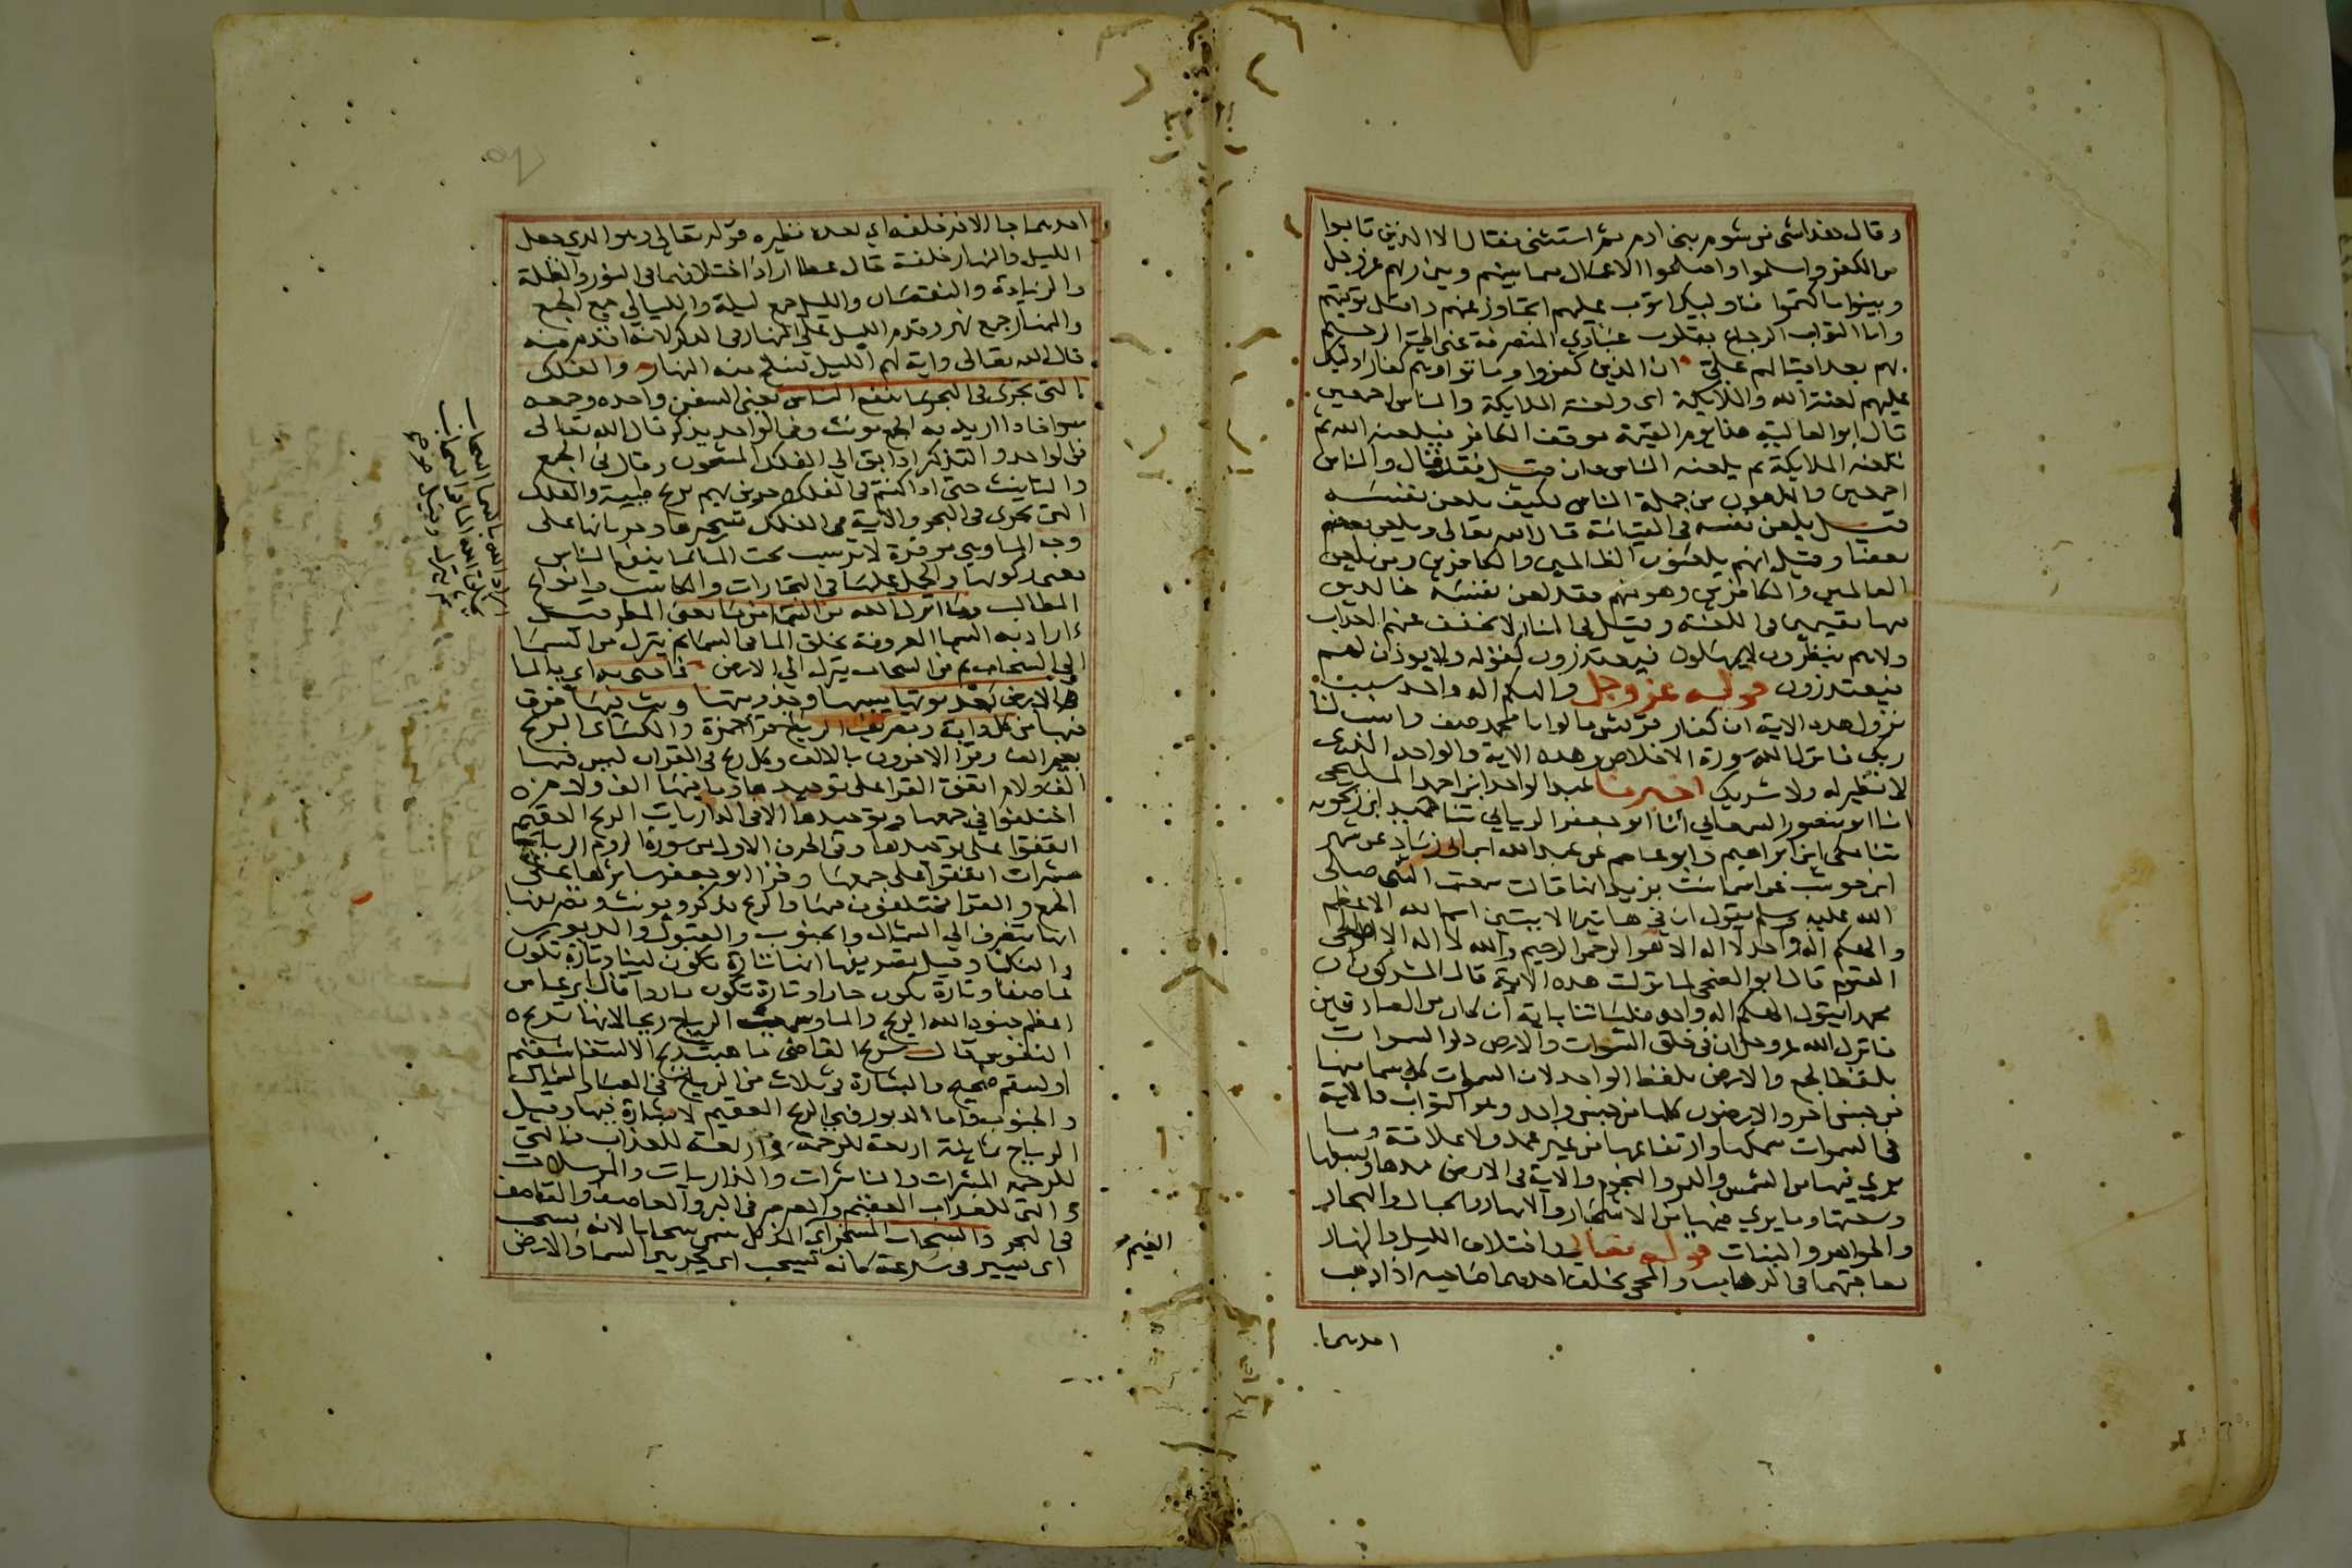 وقال هذا شى من شوم بنى ادم ثم استثنى فقال الا الذين تابوا
من الكفر واسلموا واصلحوا الاعمال فيما بينهم وبين ربهم عز وجل
وبينوا ما كتموا فاوليك اتوب عليهم اتجاوز عنهم واقبل توبتهم
وانا التواب الرجاع بقلوب عبادي المنصرفة عنى الى الرحيم
بهم بعد اقبالهم على ان الذين كفروا وماتوا وهم كفار اوليك
عليهم لعنة الله والملايكة اى ولعنة الملايكة والناس اجمعين
قال ابو العالية هذا يوم القيمة يوقف الكافر فيلعنه الله ثم
تلعنه الملايكة ثم يلعنه الناس فان قيل فقد قال والناس
اجمعين والملعون من جملة الناس فكيف يلعن نفسه
قيل يلعن نفسه فى القيامة قال الله تعالى ويلعن بعضهم
بعضا وقيل انهم يلعنون الظالمين والكافرين ومن يلعن
الظالمين والكافرين وهو منهم فقد لعن نفسه خالدين
فيها مقيمين فى اللعنة وقيل فى النار لا يخفف عنهم العذاب
ولا هم ينظرون لا يمهلون فيعتذرون كقوله ولا يوذن لهم
فيعتذرون قوله عز وجل والهكم اله واحد سبب
نزول هذه الاية ان كفار قريش قالوا يا محمد صف وانسب لنا
ربك فانزل الله سورة الاخلاص وهذه الاية والواحد الذى
لا نظير له ولا شريك اخبرنا عبد الواحد ابن احمد المليحى
انا ابو منصور السمعاني انا ابو جعفر الرياني ثنا حميد ابن زنجويه
ثنا مكى ابن ابراهيم وابو عاصم عن عبد الله ابن ابى زياد عن شهر
ابن حوشب عن اسما بنت يزيد انها قالت سمعت النبى صلى
الله عليه وسلم يقول ان فى هاتين الايتين اسم الله الاعظم
والهكم اله واحد لا اله الا هو الرحمن الرحيم والله لا اله الا هو الحى
القيوم قال ابو الضحى لما نزلت هذه الاية قال المشركون ان
محمدا يقول الهكم اله واحد فلياتنا باية ان كان من الصادقين
فانزل الله عز وجل ان فى خلق السموات والارض ذكر السموات
بلفظ الجمع والارض بلفظ الواحد لان السموات كل سما منها
من جنس اخر والارضون كلها من جنس واحد وهو التراب فالاية
فى السموات سمكها وارتفاعها من غير عمد ولا علاقة وما
يرى فيها من الشمس والقمر والنجوم والاية فى الارض مدها وبسطها
وسعتها وما يرى فيها من الاشجار والانهار والجبال والبحار
والجواهر والنبات قوله تعالى واختلاف الليل والنهار
تعاقبهما فى الذهاب والمجى يخلف احدهما صاحبه اذا ذهب
احدهما
احدهما جا الاخر خلفه اي بعده نظيره قوله تعالى وهو الذي جعل
الليل والنهار خلفة قال عطا اراد اختلافهما فى النور والظلمة
والزيادة والنقصان والليل جمع ليلة والليالي جمع الجمع
والنهار جمع نهر وقدم الليل على النهار فى الذكر لانه اقدم منه
قال الله تعالى واية لهم الليل نسلخ منه النهار والفلك
التى تجرى فى البحر بما ينفع الناس يعنى السفن واحده وجمعه
سوا فاذا اريد به الجمع يونث وفى الواحد يذكر قال الله تعالى
فى الواحد والتذكير اذ ابق الى الفلك المشحون وقال فى الجمع
والتانيث حتى اذا كنتم فى الفلك وجرين بهم بريح طيبة والفلك
التى تجرى فى البحر والاية فى الفلك تسخيرها وجريانها على
وجه الما وهي موقرة لا ترسب تحت الما بما ينفع الناس
يعنى ركوبها والحمل عليها فى التجارات والمكاسب وانواع
المطالب وما انزل الله من السما من ما يعنى المطر قيل
اراد به السما المعروفة يخلق الما فى السما ثم ينزل من السما
الى السحاب ثم من السحاب ينزل الى الارض فاحيى به اي بالما
الارض بعد موتها يبسها وجدوبتها وبث فيها فرق
فيها من كل دابة وتصريف الرياح قرا حمزة والكسائى الريح
بغير الف وقرا الاخرون بالالف وكل ريح فى القران ليس فيها
الف ولام اتفق القرا على توحيدها وما فيها الف ولام
اختلفوا فى جمعها وتوحيدها الا فى الذاريات الريح العقيم
اتفقوا على توحيدها وفى الحرف الاول من سورة الروم الرياح
مبشرات اتفقوا على جمعها وقرا ابو جعفر سايرها على
الجمع والقرا مختلفون فيها والريح يذكر ويونث وتصريفها
انها تتصرف الى الشمال والجنوب والقبول والدبور
والنكبا وقيل تصريفها انها تارة تكون لينا وتارة تكون
عاصفا وتارة تكون حارا وتارة تكون باردا قال ابن عباس
اعظم جنود الله الريح والما وسميت الرياح ريحا لانها تريح
النفوس قال شريح القاضى ما هبت ريح الا لشفا سقيم
او لسقم صحيح والبشارة فى ثلاث من الرياح فى الصبا والشمال
والجنوب واما الدبور فهي الريح العقيم لا بشارة فيها وقيل
الرياح ثمانية اربعة للرحمة واربعة للعذاب فالتى
للرحمة المبشرات والناشرات والذاريات والمرسلات
والتى للعذاب العقيم والصرصر فى البر والعاصف والقاصف
فى البحر والسحاب المسخر اى المذلل سمى سحابا لانه يسحب
اى يسير فى سرعة كانه يسحب اى يجر بين السما والارض
الغيم